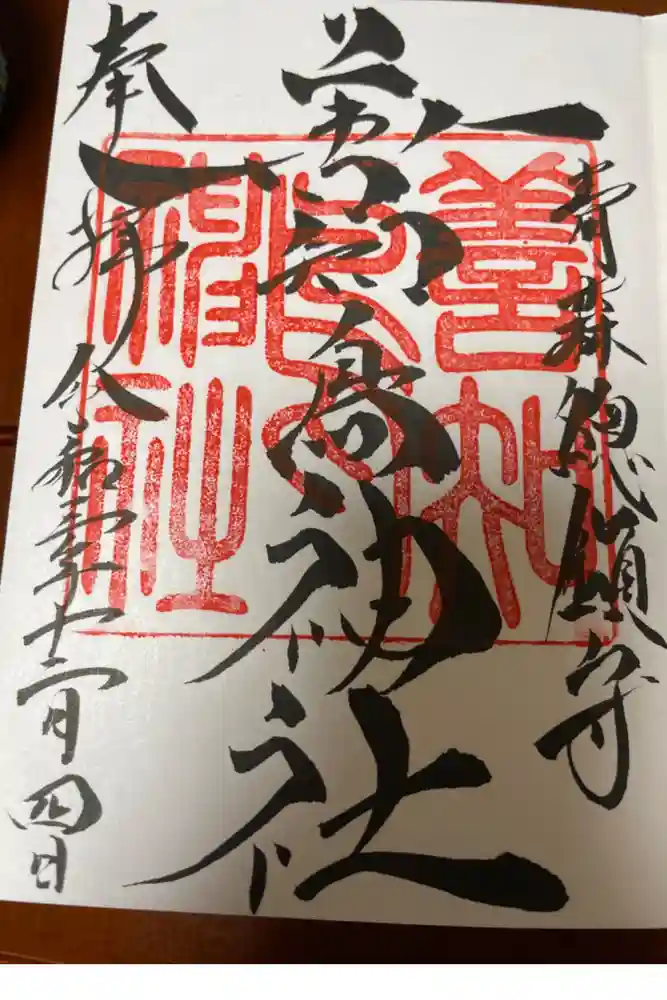 青森總鎮守
善知鳥神社
奉拝 令和三年十二月四日
善知鳥神社